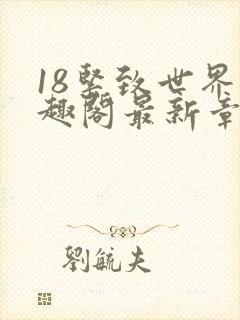 18坚致世界
趣阁最新章
劉毓夫